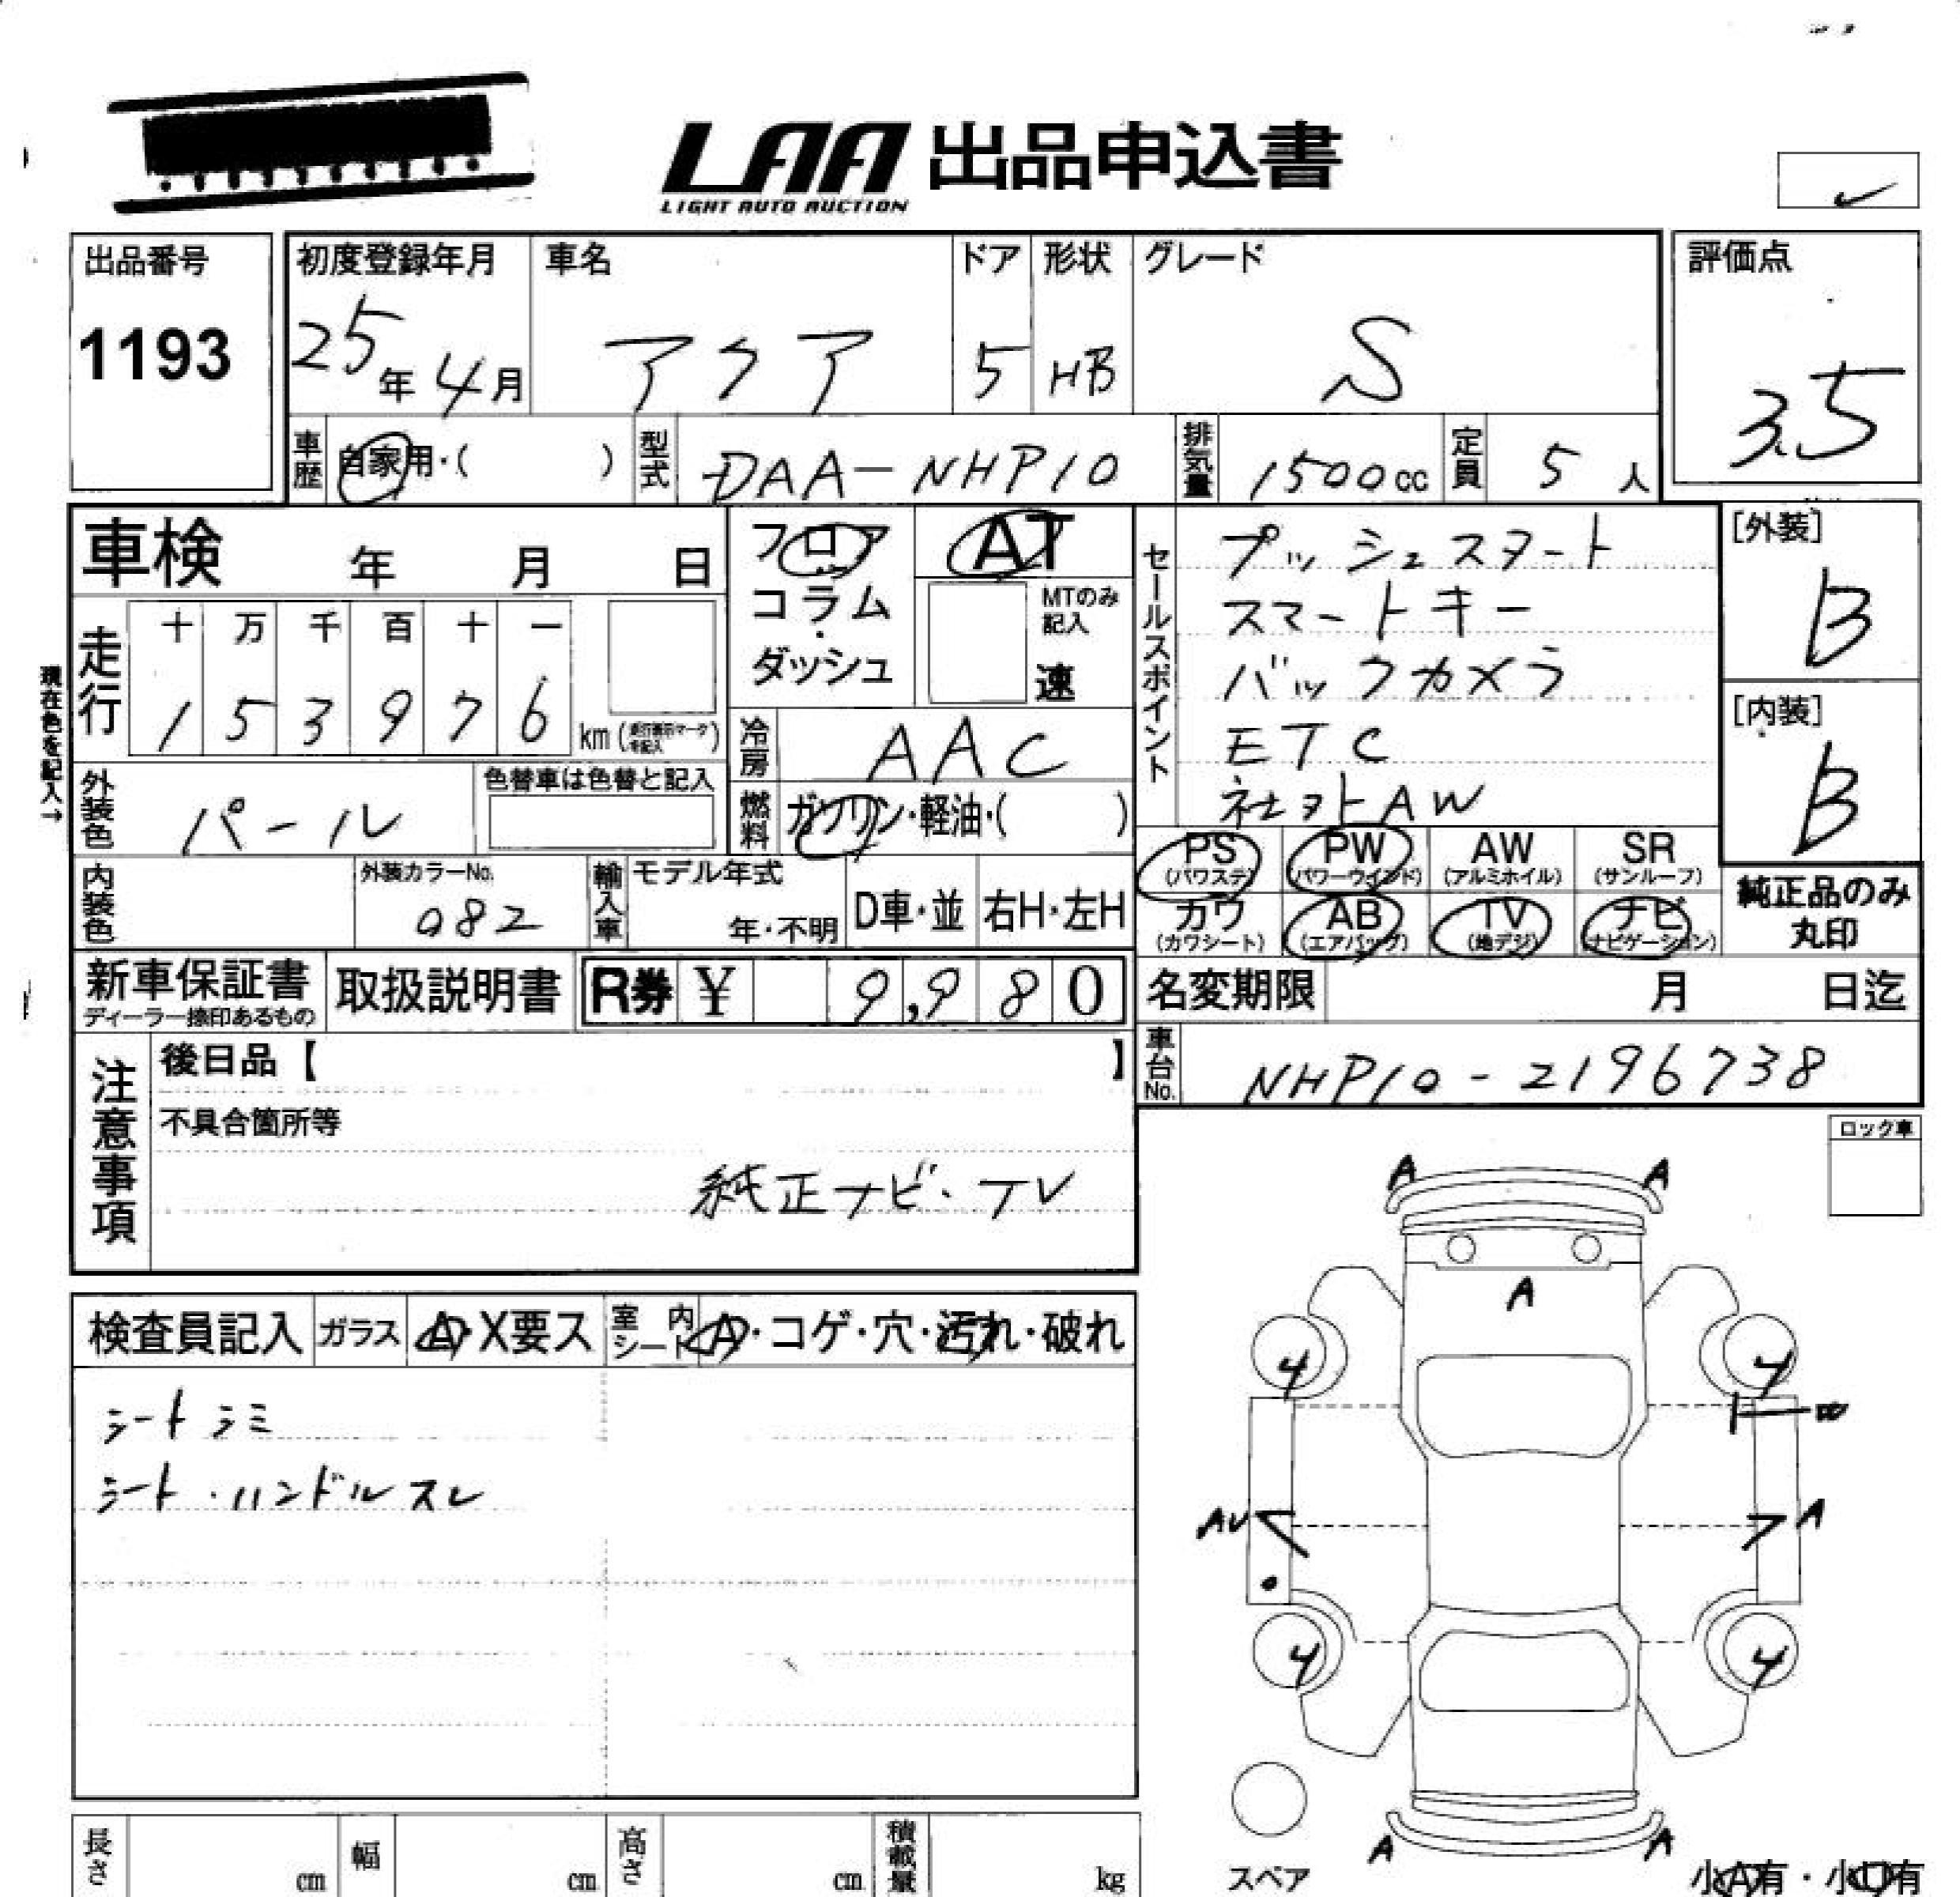 LAA 出品申込書
LIGHT AUTO AUCTION
出品番号
1193
初度登録年月
25年 4月
車名
アクア
ドア
5
形状
HB
グレード
S
評価点
3.5
車歴
自家用・( )
型式
DAA-NHP10
排気量
1500cc
定員
5人
車検 年 月 日
フロア
コラム
・
ダッシュ
AT
MTのみ
記入
速
セールスポイント
プッシュスタート
スマートキー
バックカメラ
ETC
社外AW
[外装]
B
[内装]
B
現在色を記入→
走行
十 万 千 百 十 一
1 5 3 9 7 6
km
冷房
AAC
外装色
パール
色替車は色替と記入
燃料
ガソリン・軽油・( )
PS
(パワステ)
PW
(パワーウインド)
AW
(アルミホイル)
SR
(サンルーフ)
カワ
(カワシート)
AB
(エアバッグ)
TV
(地デジ)
ナビ
(ナビゲーション)
純正品のみ
丸印
内装色
外装カラーNo.
082
輸入車
モデル年式
年・不明
D車・並
右H・左H
新車保証書
ディーラー捺印あるもの
取扱説明書
R券 ¥ 9,980
名変期限 月 日迄
車台No.
NHP10-2196738
注意事項
後日品【 】
不具合箇所等
純正ナビ・TV
ロック車
検査員記入
ガラス
A・X要ス
室内
シート
A・コゲ・穴・汚れ・破れ
シートシミ
シート・ハンドルスレ
A A
A
4 4
AU A
4 4
A A
スペア
小A有・小U有
長さ cm
幅 cm
高さ cm
積載量 kg